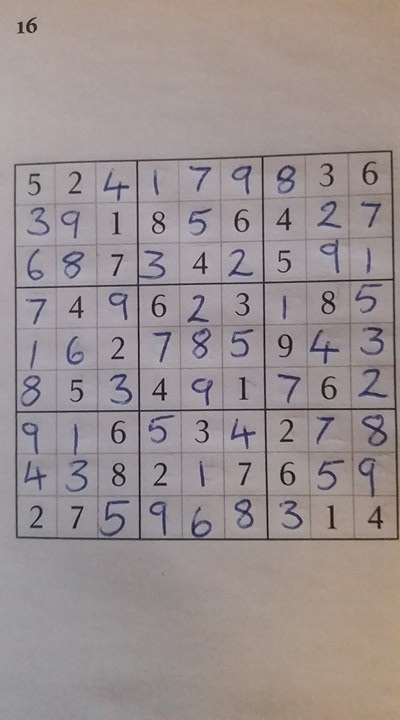 16
5 2 4 1 7 9 8 3 6
3 9 1 8 5 6 4 2 7
6 8 7 3 4 2 5 9 1
7 4 9 6 2 3 1 8 5
1 6 2 7 8 5 9 4 3
8 5 3 4 9 1 7 6 2
9 1 6 5 3 4 2 7 8
4 3 8 2 1 7 6 5 9
2 7 5 9 6 8 3 1 4